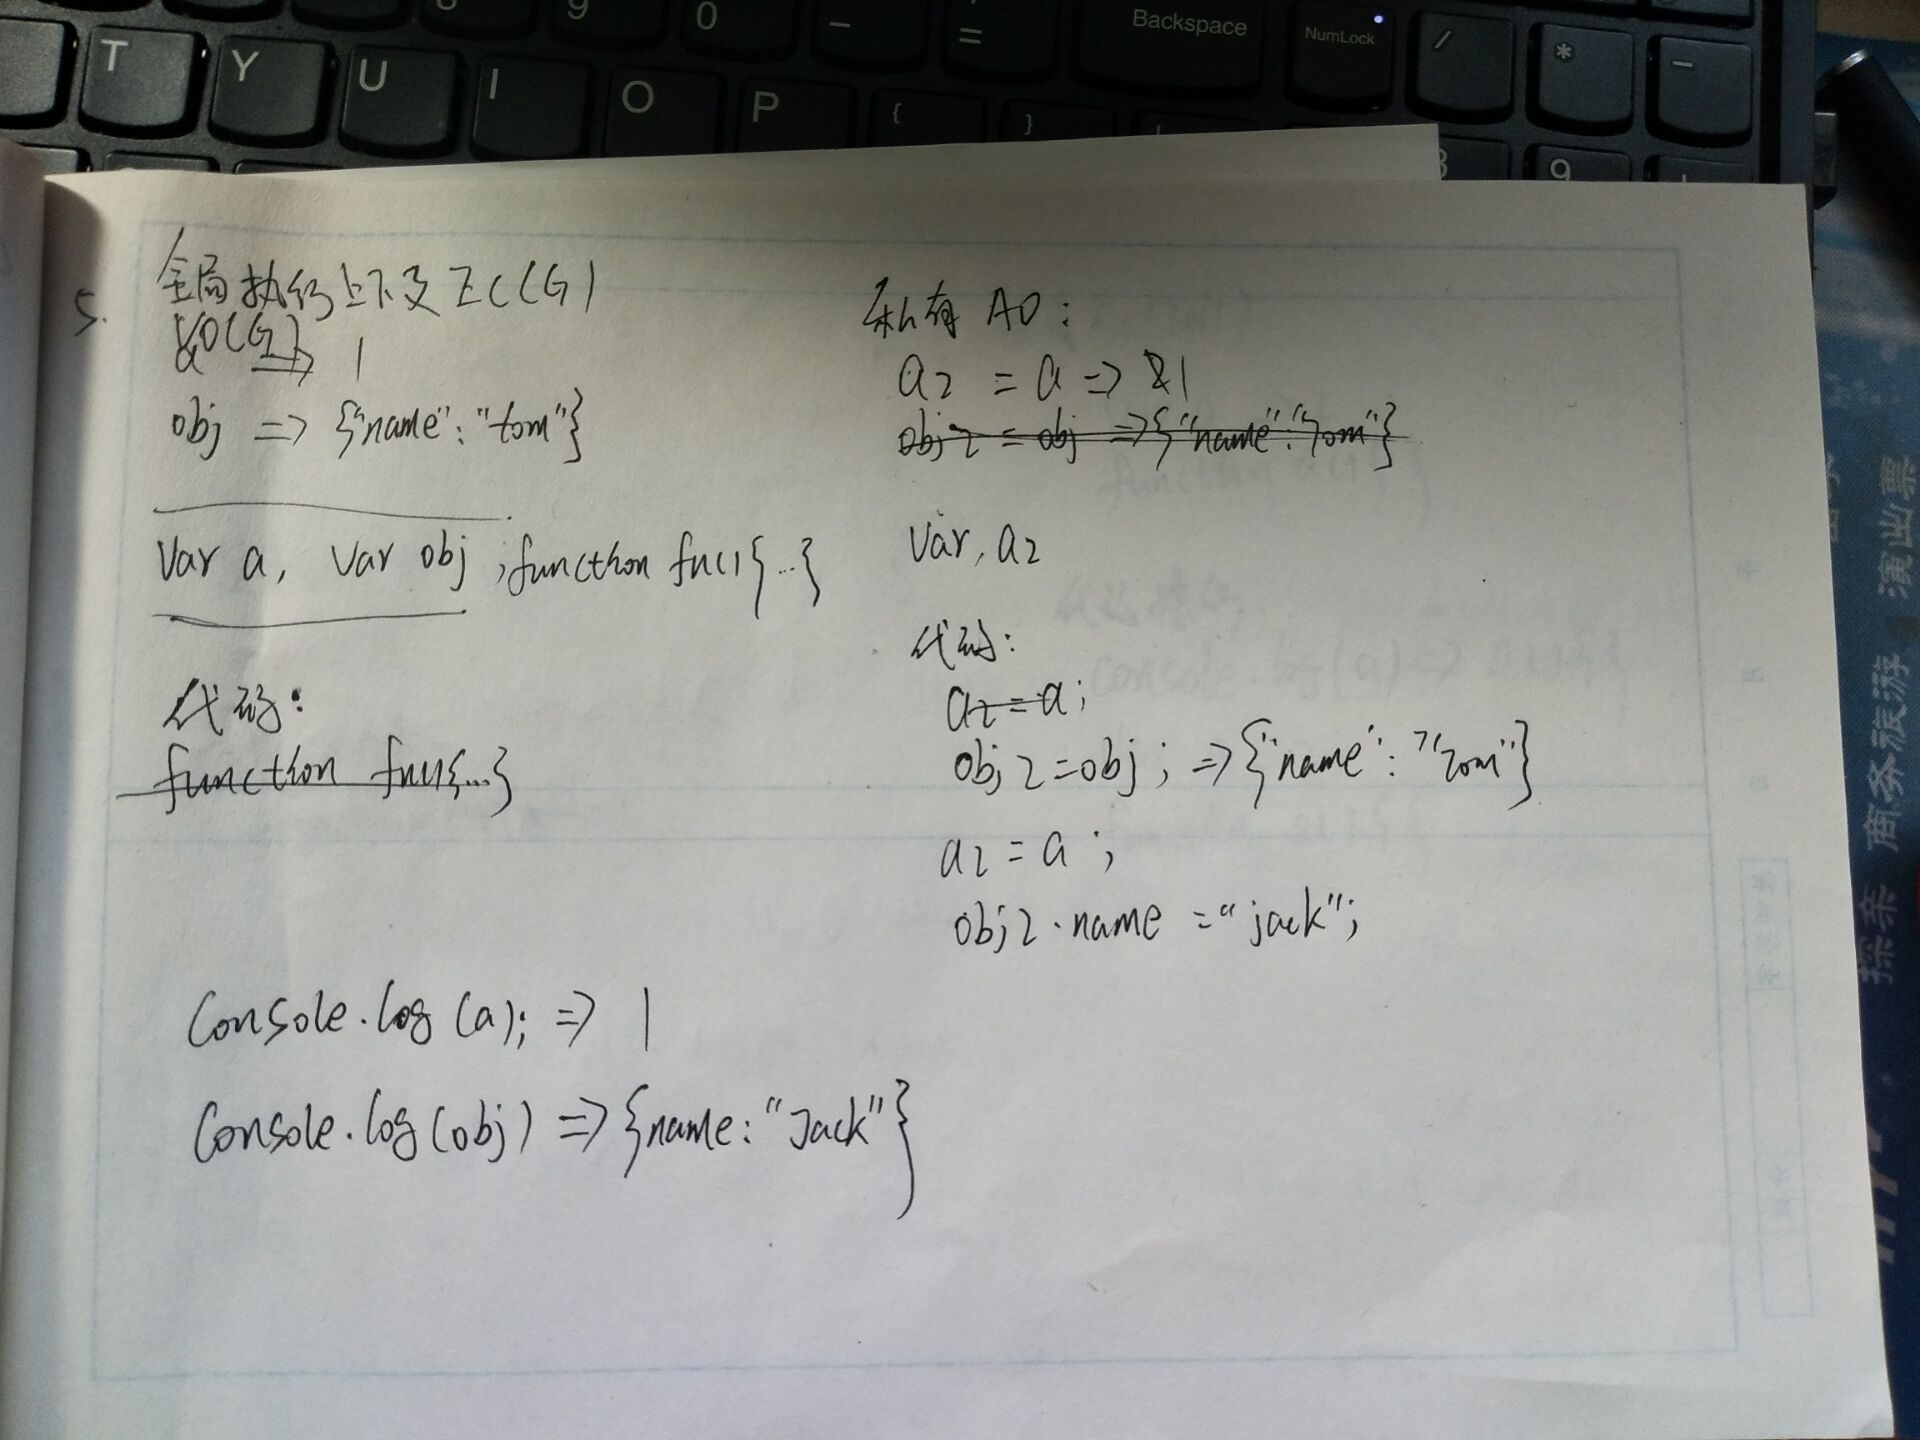 T Y U I O P { }
9 0 - = Backspace NumLock / * -
9
5.
全局执行上下文 EC(G)
VO(G)
a => 1
obj => {"name": "tom"}
var a, var obj ; function fn(){...}
代码:
function fn(){...}
console.log(a); => 1
console.log(obj) => {name: "Jack"}
私有 AO:
a2 = a => 1
obj2 = obj => {"name":"Tom"}
var, a2
代码:
a2=a;
obj2=obj; => {"name": "Tom"}
a2=a;
obj2.name = "jack";
探亲 商务旅游 演出票